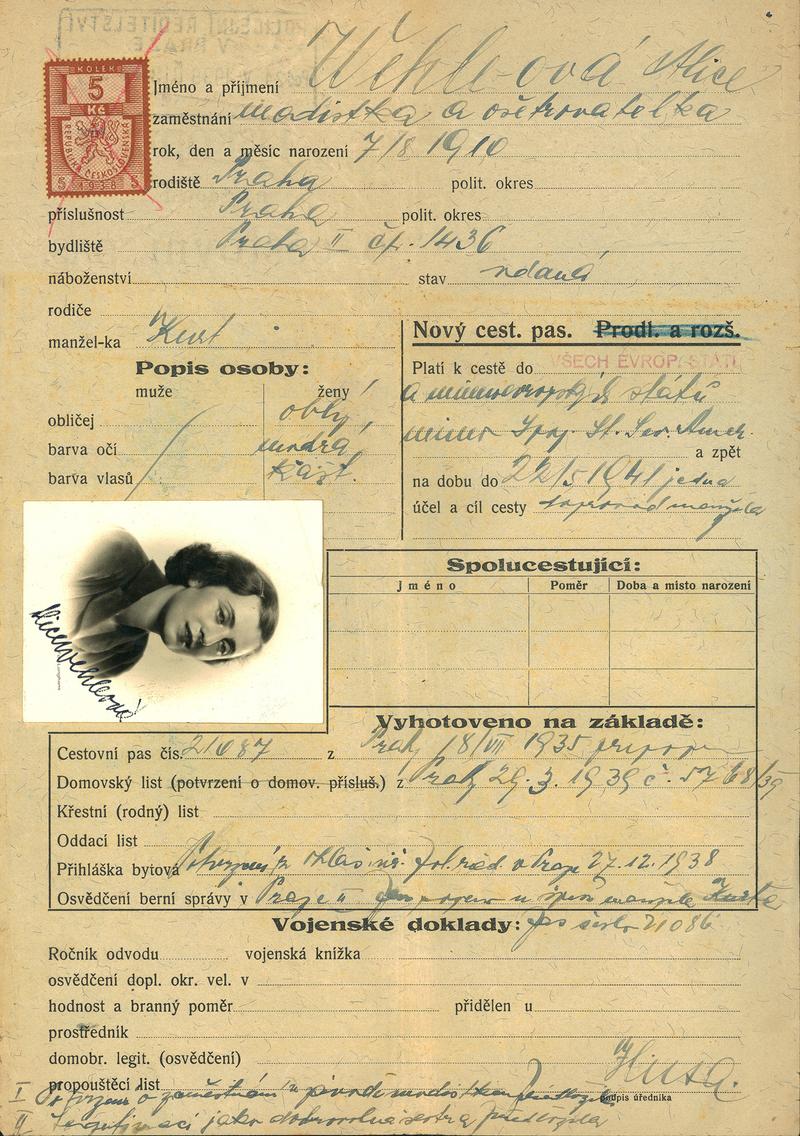 POLICEJNÍ ŘEDITELSTVÍ
V PRAZE
KOLEK
5
Kč
REPUBLIKA ČESKOSLOVENSKÁ
5 1938 5
Jméno a příjmení Wehle-ová Alice
zaměstnání modistka a ošetrovatelka
rok, den a měsíc narození 7/8 1910
rodiště Praha polit. okres
příslušnost Praha polit. okres
bydliště Praha II čp. 1436
náboženství stav vdaná
rodiče
manžel-ka Kurt
Popis osoby:
muže ženy
obličej oblý
barva očí modrá
barva vlasů kašt.
Nový cest. pas. Prodl. a rozš.
Platí k cestě do VŠECH EVROP. STÁTŮ
a mimoevropských států
mimo Spoj. St. Sev. Amer.
a zpět
na dobu do 22/5 1941 jedna
účel a cíl cesty doprovod manžela
Alice Wehleová
Spolucestující:
jméno Poměr Doba a místo narození
Vyhotoveno na základě:
Cestovní pas čís. 21087 z Prahy 18/VII 1935
Domovský list (potvrzení o domov. přísluš.) z Prahy 29.3.1939 č. 5768/39
Křestní (rodný) list
Oddací list
Přihláška bytová Potvrzení z ohlaš. pol. řed. v Praze 27.12.1938
Osvědčení berní správy v Praze II manžela Kurta
Vojenské doklady: pas číslo 21086
Ročník odvodu vojenská knížka
osvědčení dopl. okr. vel. v
hodnost a branný poměr přidělen u
prostředník
domobr. legit. (osvědčení)
propouštěcí list
podpis úředníka
I Potvrzení o zaměstnání předložila
II Legitimaci jako dobrovolná sestra předložila